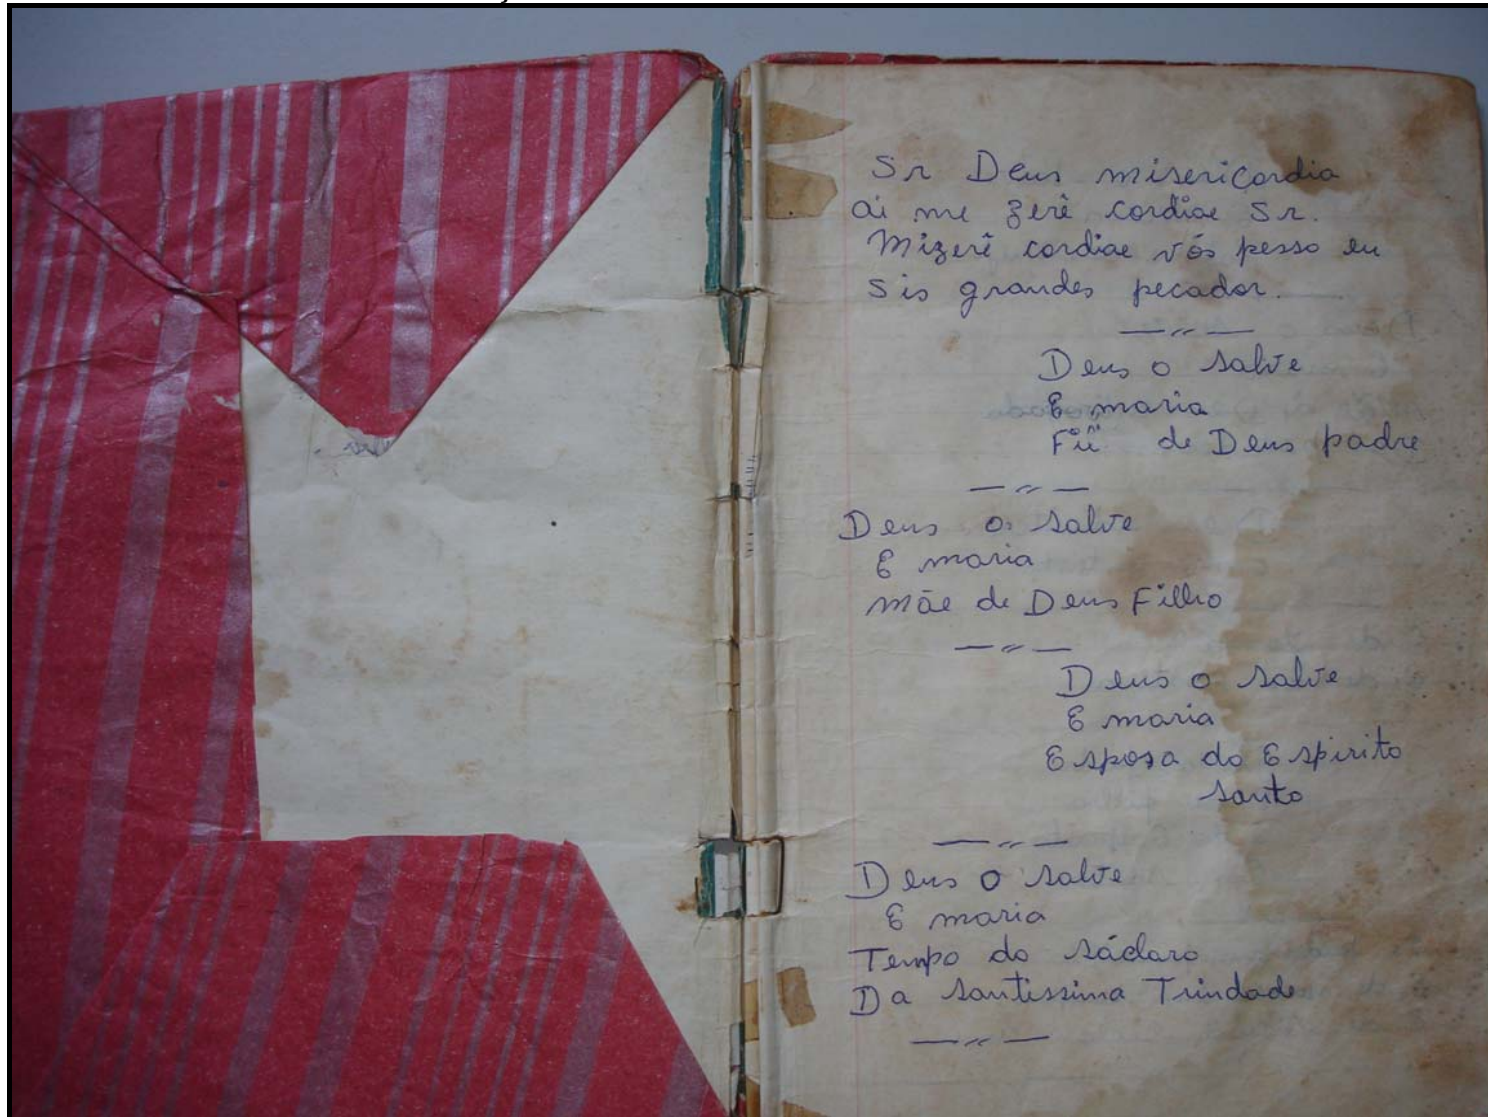 Sr Deus misericordia
ai me zerê cordiae Sr.
Mizerê cordiae vós pesso eu
Sis grandes pecador.
Deus o salve
E maria
de Deus padre
Deus o salve
E maria
mãe de Deus Filho
Deus o salve
E maria
Esposa do Espirito
santo
Deus o salve
E maria
Tempo do sáclaro
Da santissima Trindade